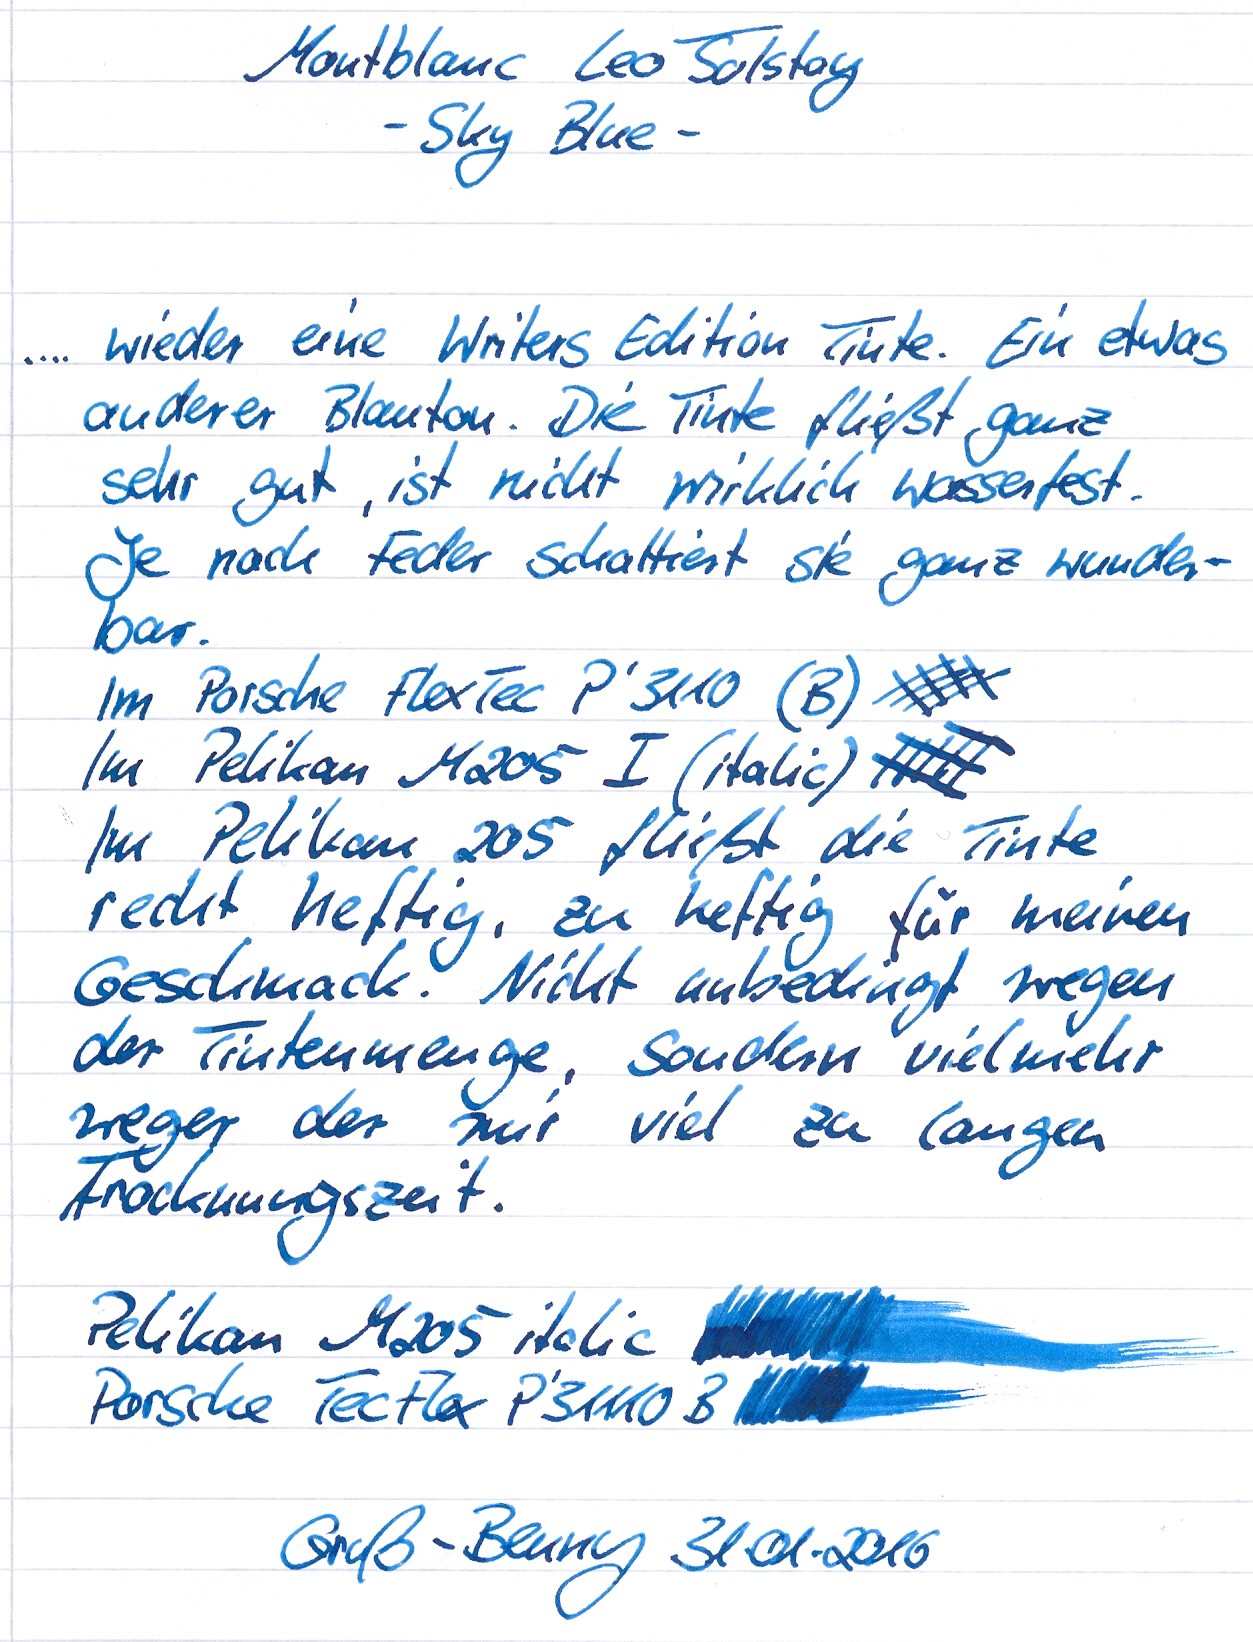 Montblanc Leo Tolstoy
- Sky Blue -
.... wieder eine Writers Edition Tinte. Ein etwas
anderer Blauton. Die Tinte fließt ganz
sehr gut, ist nicht wirklich wasserfest.
Je nach Feder schattiert sie ganz wunder-
bar.
Im Porsche FlexTec P'3110 (B)
Im Pelikan M205 I (italic)
Im Pelikan 205 fließt die Tinte
recht heftig, zu heftig für meinen
Geschmack. Nicht unbedingt wegen
der Tintenmenge, sondern vielmehr
wegen der mir viel zu langen
Trocknungszeit.
Pelikan M205 italic
Porsche TecFlex P'3110 B
Gruß - Benny 31.01.2016